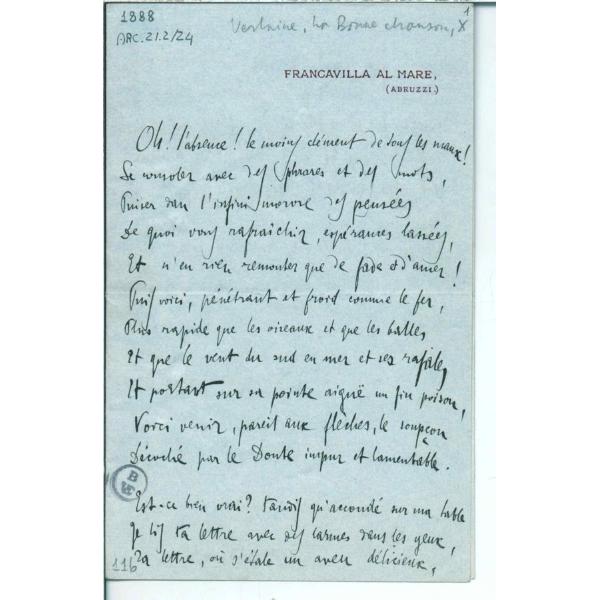 1888
ARC.21.2/24
Verlaine, La Bonne chanson, X
1
FRANCAVILLA AL MARE,
(ABRUZZI.)
Oh! l'absence! le moins clément de tous les maux!
Se consoler avec des phrases et des mots,
Puiser dans l'infini morose des pensées
De quoi vous rafraîchir, espérances lassées,
Et n'en rien remonter que de fade et d'amer!
Puis voici, pénétrant et froid comme le fer,
Plus rapide que les oiseaux et que les balles
Et que le vent du sud en mer et ses rafales
Et portant sur sa pointe aiguë un fin poison,
Voici venir, pareil aux flèches, le soupçon
Décoché par le Doute impur et lamentable.
Est-ce bien vrai? tandis qu'accoudé sur ma table
Je lis ta lettre avec des larmes dans les yeux,
Ta lettre, où s'étale un aveu délicieux,
116